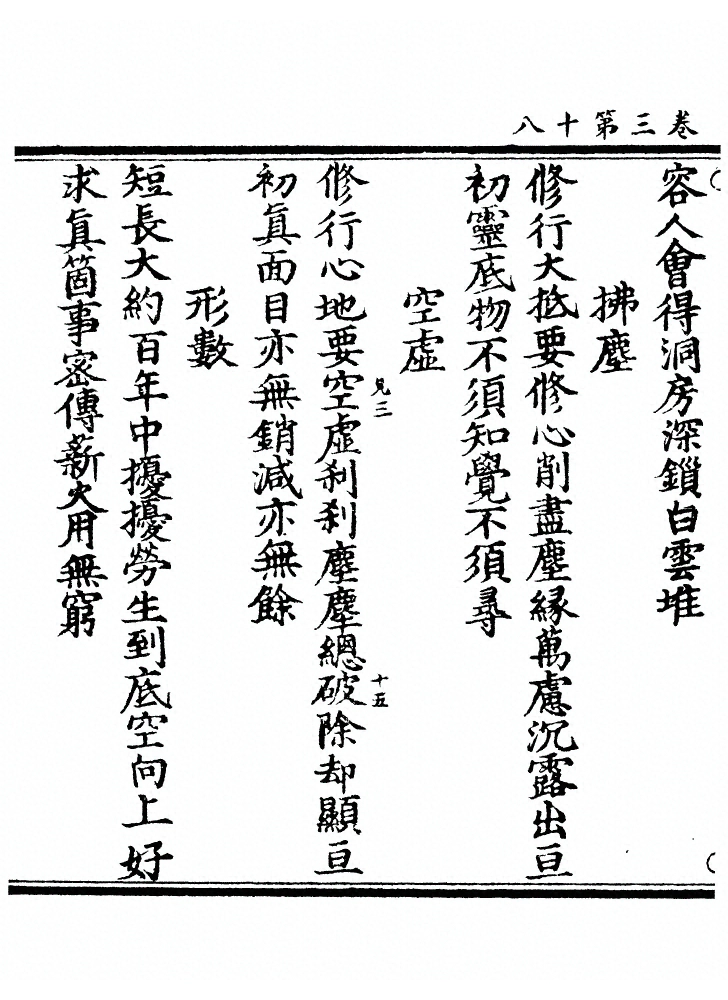 卷三第十八
容人會得洞房深鎖白雲堆
拂塵
修行大抵要修心削盡塵緣萬慮沉露出亘
初靈底物不須知覺不須尋
空虛
修行心地要空虛刹刹塵塵總破除却顯亘
見三
十五
初真面目亦無銷減亦無餘
形數
短長大約百年中擾擾勞生到底空向上好
求真箇事密傳薪火用無窮